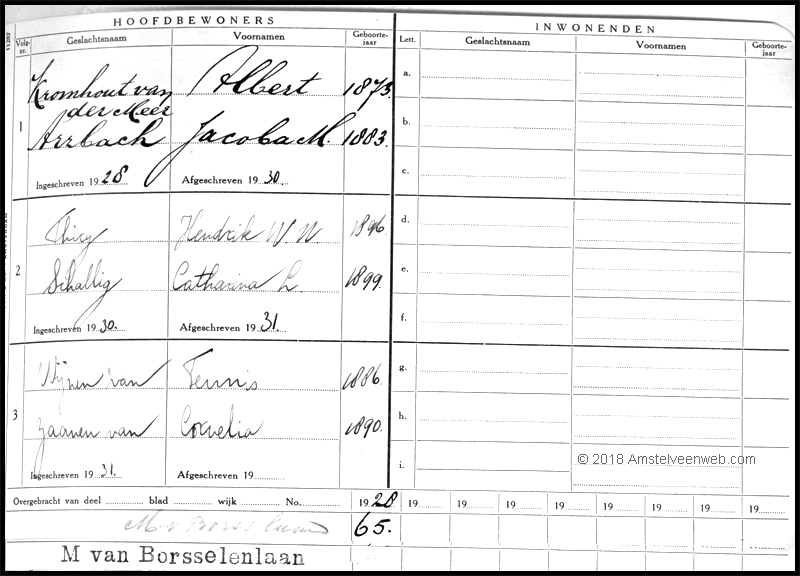 HOOFDBEWONERS
INWONENDEN
Volg-nr. Geslachtsnaam Voornamen Geboorte-jaar
Lett. Geslachtsnaam Voornamen Geboorte-jaar
1
Kromhout van der Meer Albert 1873.
Arzbach Jacoba M. 1883.
Ingeschreven 1928 Afgeschreven 1930.
2
Thiry Hendrik W. N. 1896
Schallig Catharina L. 1899.
Ingeschreven 1930. Afgeschreven 1931.
3
Wijnen van Teunis 1886.
Zaanen van Cornelia 1890.
Ingeschreven 1931. Afgeschreven 19
a.
b.
c.
d.
e.
f.
g.
h.
i.
© 2018 Amstelveenweb.com
Overgebracht van deel blad wijk No. 1928 19 19 19 19 19 19 19 19
M v Borss laan 65.
M van Borsselenlaan